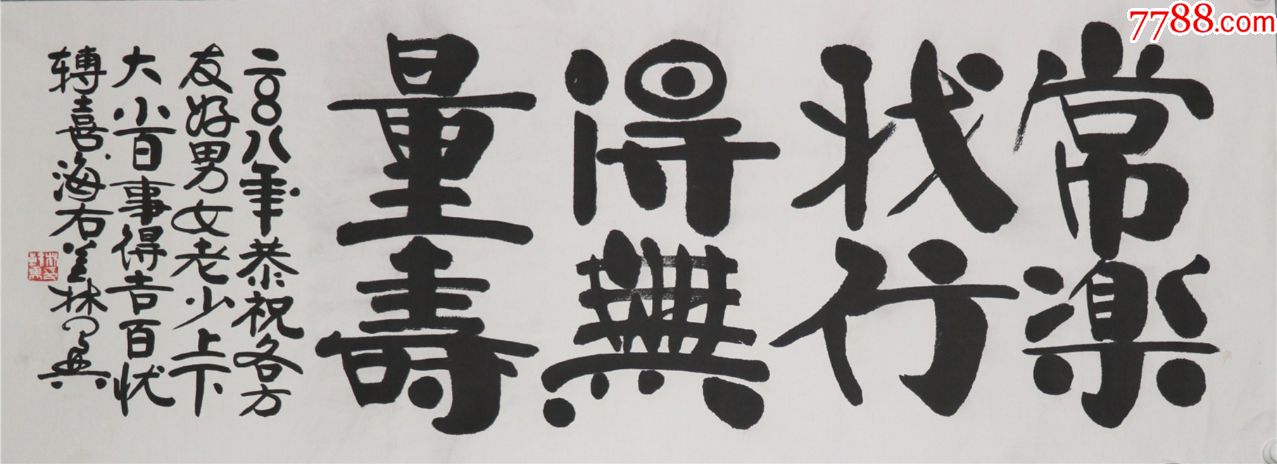 7788.com
常楽
我行
得無
量壽
二〇〇八年恭祝各方
友好男女老少上下
大小百事得吉百忧
轉喜海右林